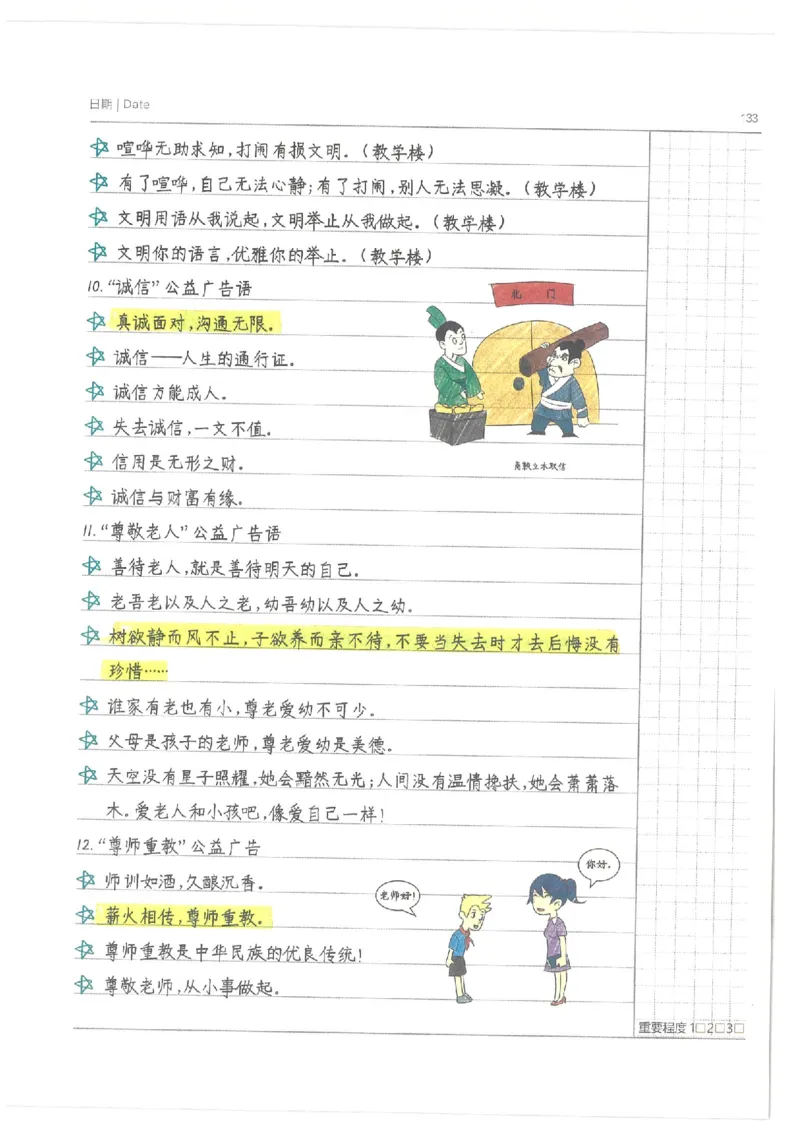 日期 | Date
133
喧哗无助求知,打闹有损文明.(教学楼)
有了喧哗,自己无法心静;有了打闹,别人无法思凝.(教学楼)
文明用语从我说起,文明举止从我做起.(教学楼)
文明你的语言,优雅你的举止.(教学楼)
10.“诚信”公益广告语
北 门
真诚面对,沟通无限.
诚信——人生的通行证.
诚信方能成人.
失去诚信,一文不值.
信用是无形之财.
商鞅立木取信
诚信与财富有缘.
11.“尊敬老人”公益广告语
善待老人,就是善待明天的自己.
老吾老以及人之老,幼吾幼以及人之幼.
树欲静而风不止,子欲养而亲不待,不要当失去时才去后悔没有
珍惜……
谁家有老也有小,尊老爱幼不可少.
父母是孩子的老师,尊老爱幼是美德.
天空没有星子照耀,她会黯然无光;人间没有温情搀扶,她会萧萧落
木.爱老人和小孩吧,像爱自己一样!
12.“尊师重教”公益广告
你好.
师训如酒,久酿沉香.
老师好!
薪火相传,尊师重教.
尊师重教是中华民族的优良传统!
尊敬老师,从小事做起.
重要程度 1□2□3□